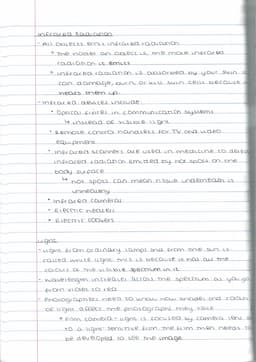 Infrared Radiation
- All objects emit infrared radiation
* The hotter an object is, the more infrared
radiation it emits
* infrared radiation is absorbed by your skin
can damage, burn or kill skin cells because
heats them up.
- Infrared devices include:
* Optical fibres in communication systems
↳ instead of visible light
* Remote control handsets for TV and video
equipment
* infrared scanners are used in medicine to detect
infrared radiation emitted by hot spots on the
body surface
↳ hot spots can mean tissue underneath is
unhealthy
* infrared cameras
* Electric heaters
* Electric cookers
Light
- Light from ordinary lamps and from the sun is
called white light. This is because it has all the
colours of the visible spectrum in it
- wavelength increases across the spectrum as you go
from violet to red
- Photographers need to know how shades and colours
of light affect the photographs they take
* Film camera - light is focused by camera lens
to a light-sensitive film. The film then needs to
be developed to see the image